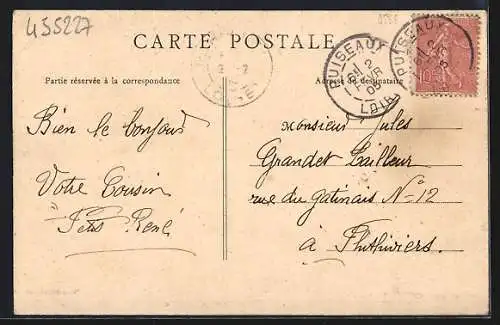 455227
CARTE POSTALE
Partie réservée à la correspondance
Adresse destinataire
PUISEAUX
2
05
LOIRET
PUISEAUX
10
Bien le bonjour
Votre Cousin
René
Monsieur Jules
Grandet Tailleur
rue du gatinais N=12
à Phithiviers.